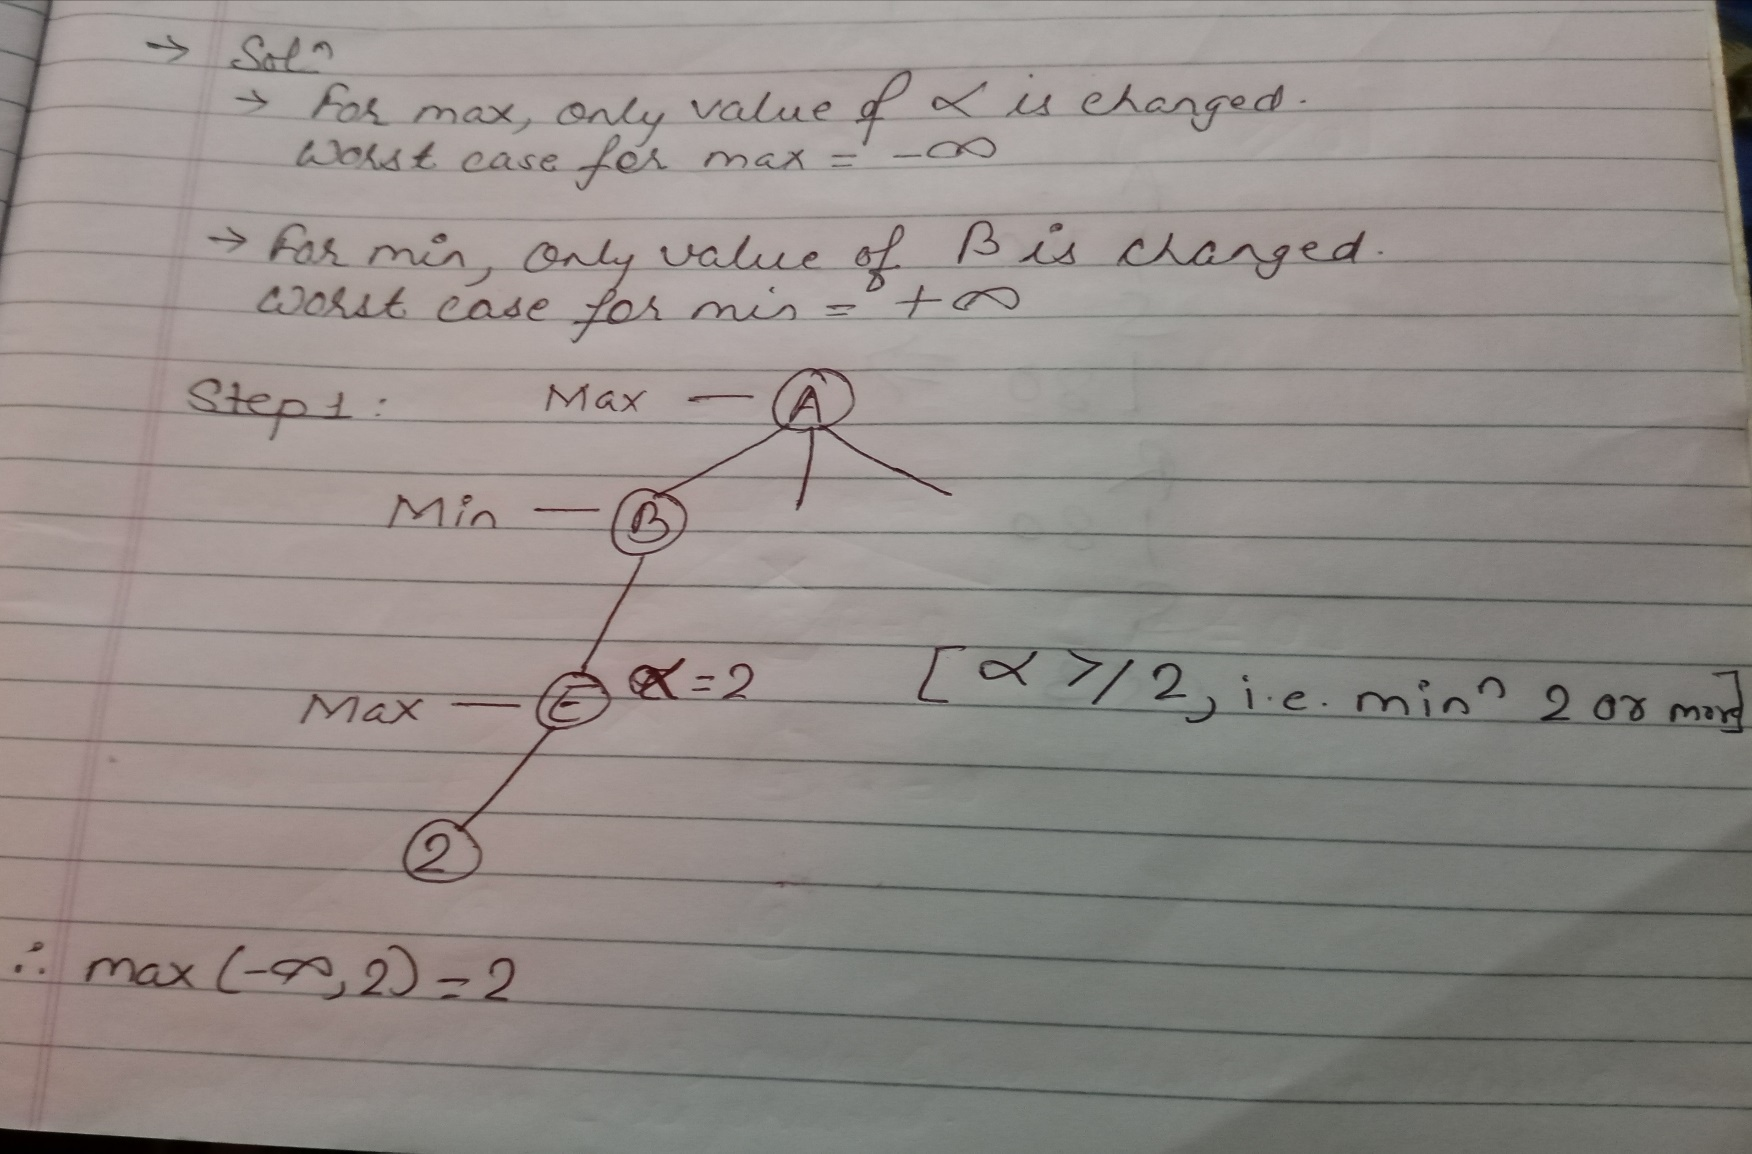 → Solⁿ
→ For max, only value of α is changed.
Worst case for max = -∞
→ For min, only value of B is changed.
Worst case for min = +∞
Step 1: Max — A
Min — B
Max — E α=2 [α >/ 2, i.e. minⁿ 2 or more]
2
∴ max (-∞, 2) = 2